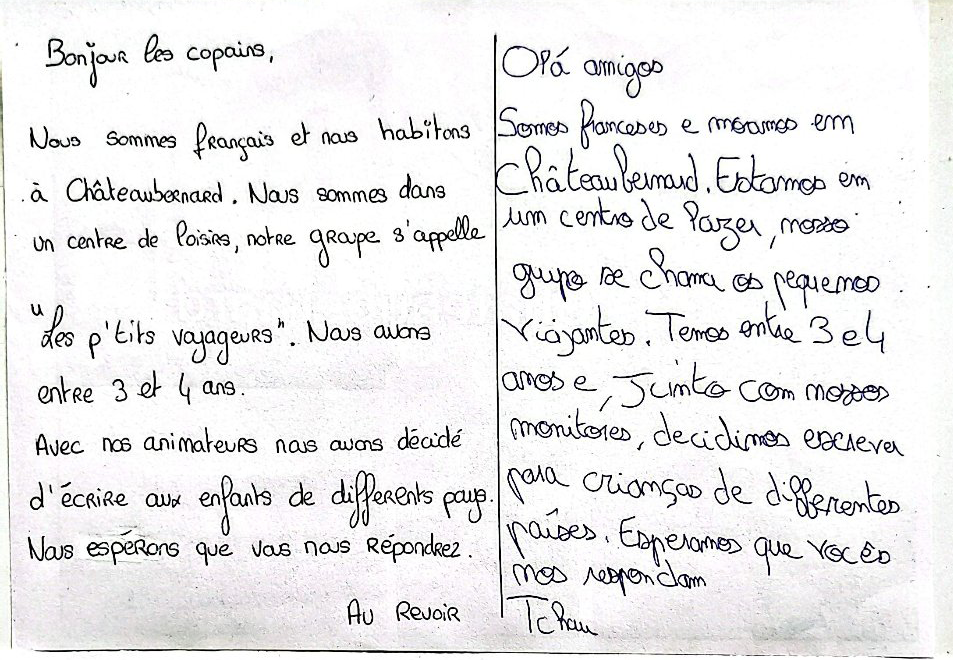 Bonjour les copains,
Nous sommes français et nous habitons
à Châteaubernard. Nous sommes dans
un centre de loisirs, notre groupe s'appelle
"Les p'tits voyageurs". Nous avons
entre 3 et 4 ans.
Avec nos animateurs nous avons décidé
d'écrire aux enfants de differents pays.
Nous espérons que vous nous répondrez.
Au Revoir
Olá amigos
Somos franceses e moramos em
Châteaubernard. Estamos em
um centro de lazer, nosso
grupo se chama os pequenos
viajantes. Temos entre 3 e 4
anos e, junto com nossos
monitores, decidimos escrever
para crianças de differentes
países. Esperamos que vocês
nos respondam
Tchau